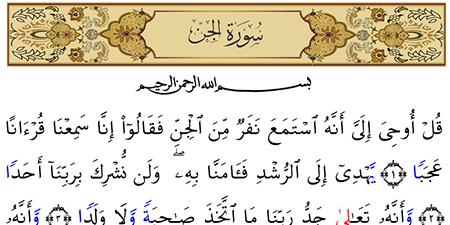 سُورَةُ الجِن
بسم الله الرحمن الرحيم
قُلْ أُوحِىَ إِلَىَّ أَنَّهُ ٱسْتَمَعَ نَفَرٌ مِّنَ ٱلْجِنِّ فَقَالُوٓا۟ إِنَّا سَمِعْنَا قُرْءَانًا
عَجَبًا ﴿١﴾ يَهْدِىٓ إِلَى ٱلرُّشْدِ فَـَٔامَنَّا بِهِۦ ۖ وَلَن نُّشْرِكَ بِرَبِّنَآ أَحَدًا
﴿٢﴾ وَأَنَّهُۥ تَعَٰلَىٰ جَدُّ رَبِّنَا مَا ٱتَّخَذَ صَٰحِبَةً وَلَا وَلَدًا ﴿٣﴾ وَأَنَّهُۥ